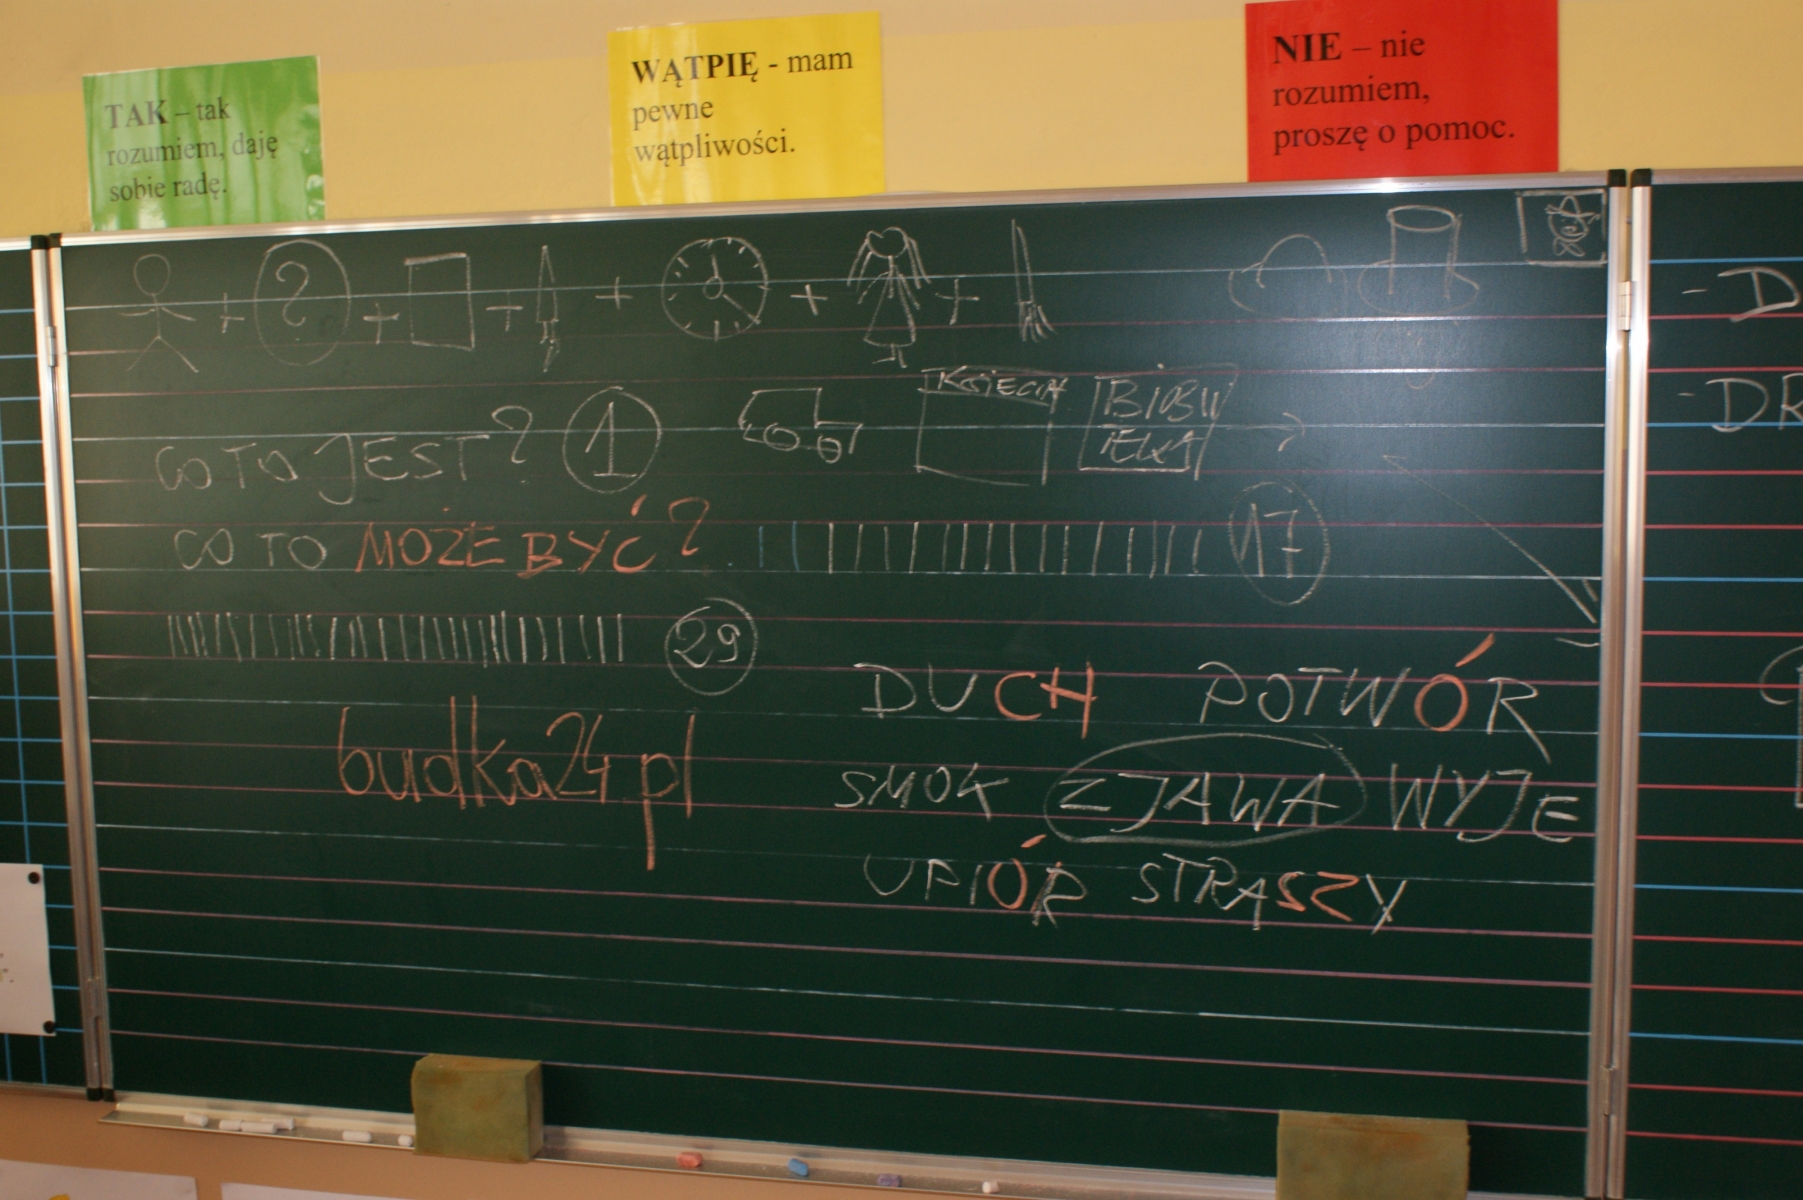 TAK – tak
rozumiem, daję
sobie radę.
WĄTPIĘ - mam
pewne
wątpliwości.
NIE – nie
rozumiem,
proszę o pomoc.
?
CO TO JEST? 1
CO TO MOŻE BYĆ? 17
29
budka24.pl
DUCH POTWÓR
SMOK ZJAWA WYJE
UPIÓR STRASZY
- D
- DR